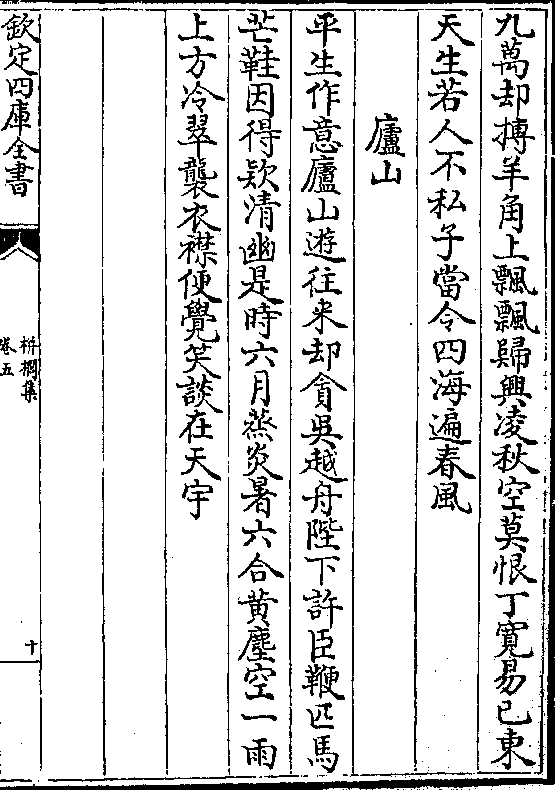 九萬却摶羊角上飄飄歸興凌秋空莫恨丁寛易已東
天生若人不私子當令四海遍春風
廬山
平生作意廬山遊往来却貪吳越舟陛下許臣鞭匹馬
芒鞋因得欵清幽是時六月蒸炎暑六合黄塵空一雨
上方冷翠襲衣襟便覺笑談在天宇
欽定四庫全書
栟櫚集
卷五
十